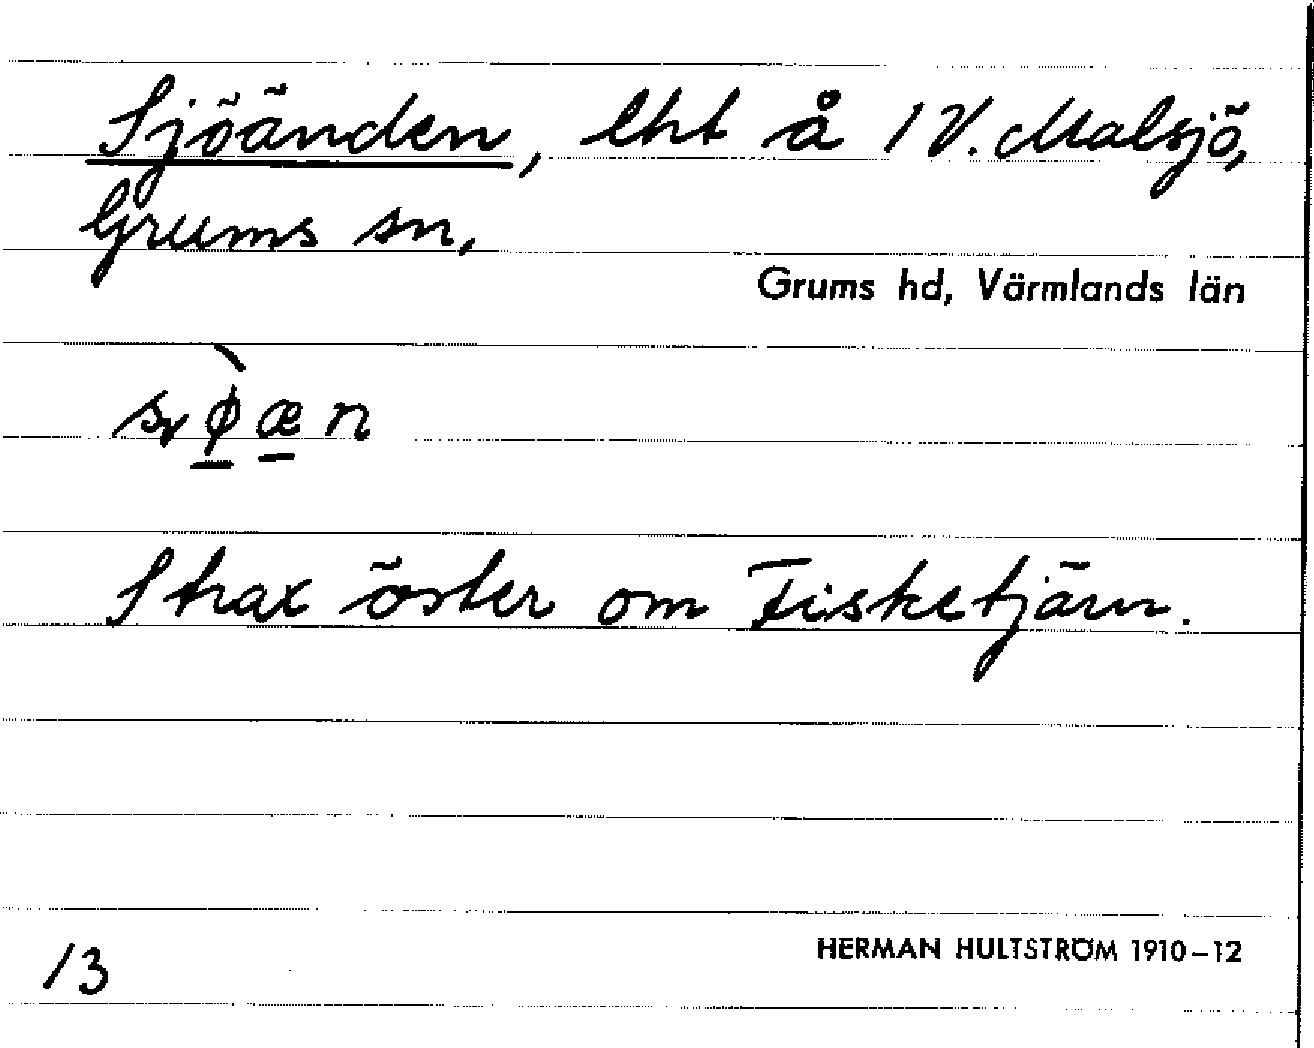 Sjöänden, lht å 1 V. Malsjö,
Grums sn,
Grums hd, Värmlands län
Strax öster om Fisketjärn.
13
HERMAN HULTSTRÖM 1910–12